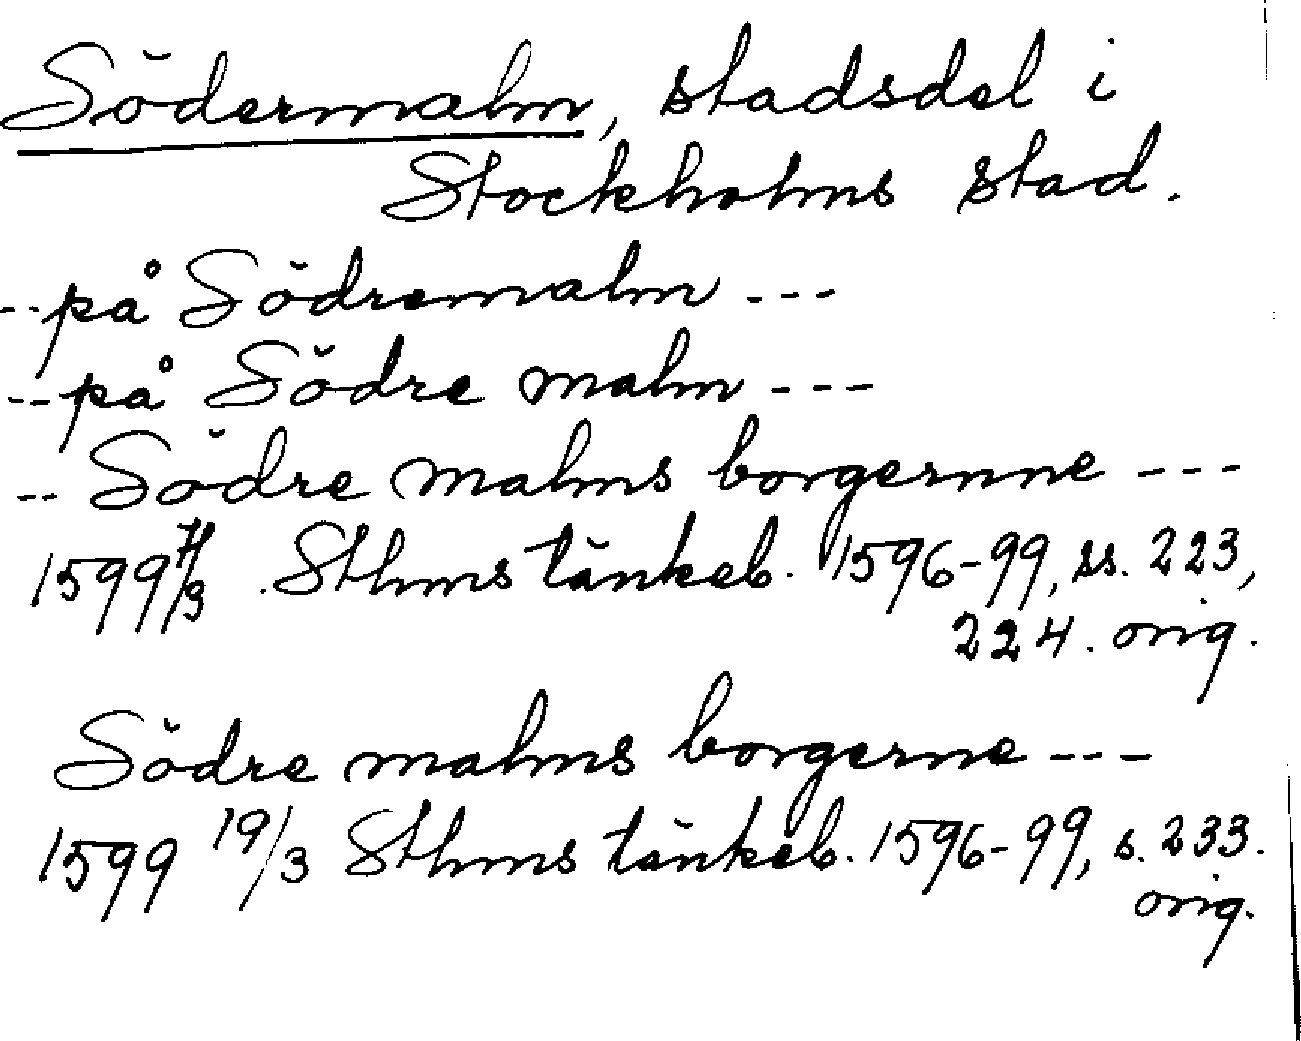 Södermalm, stadsdel i
Stockholms stad.
--på Södremalm ---
--på Södre malm ---
-- Södre malms borgernne ---
1599 7/3 . Sthms tänkeb. 1596-99, ss. 223,
224. orig.
Södre malms borgerne ---
1599 19/3 Sthms tänkeb. 1596-99, s. 233.
orig.